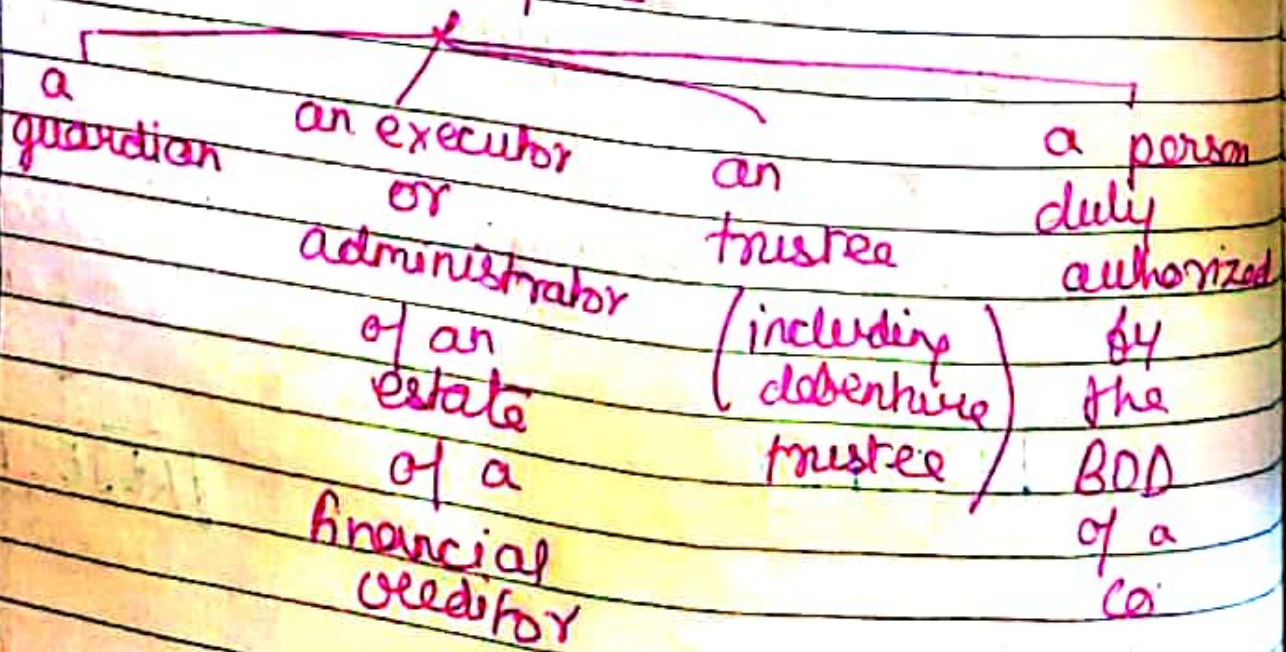 a
guardian
an executor
or
administrator
of an
estate
of a
financial
creditor
an
trustee
(including
debenture
trustee)
a person
duly
authorized
by
the
BOD
of a
co.